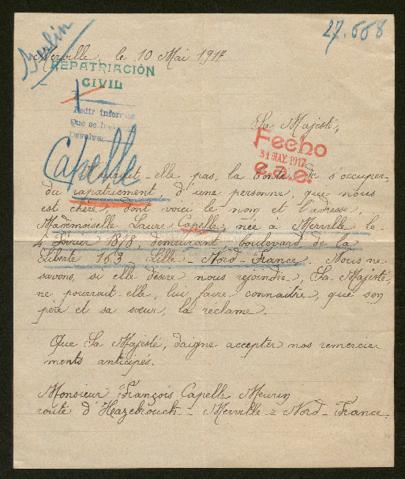 Berlin
27.668
Merville, le 10 Mai 1917
REPATRIACIÓN
CIVIL
Pedir informes
Que se
Sa Majesté,
Fecho
31 MAY. 1917
Capelle
-elle pas, la bonté de s'occuper
du rapatriement d'une personne, que nous
est chère, dont voici le nom et l'adresse,
Mademoiselle Laure Capelle née à Merville le
4 Février 1878, demeurant, boulevard de la
Liberté 163 - Lille - Nord-France. Nous ne
savons, si elle désire nous rejoindre, Sa Majesté,
ne pourrait-elle, lui faire connaître, que son
père et sa sœur, la réclame.
Que Sa Majesté, daigne accepter nos remercie-
ments anticipés.
Monsieur François Capelle Meurin
route d'Hazebrouck - Merville - Nord-France.